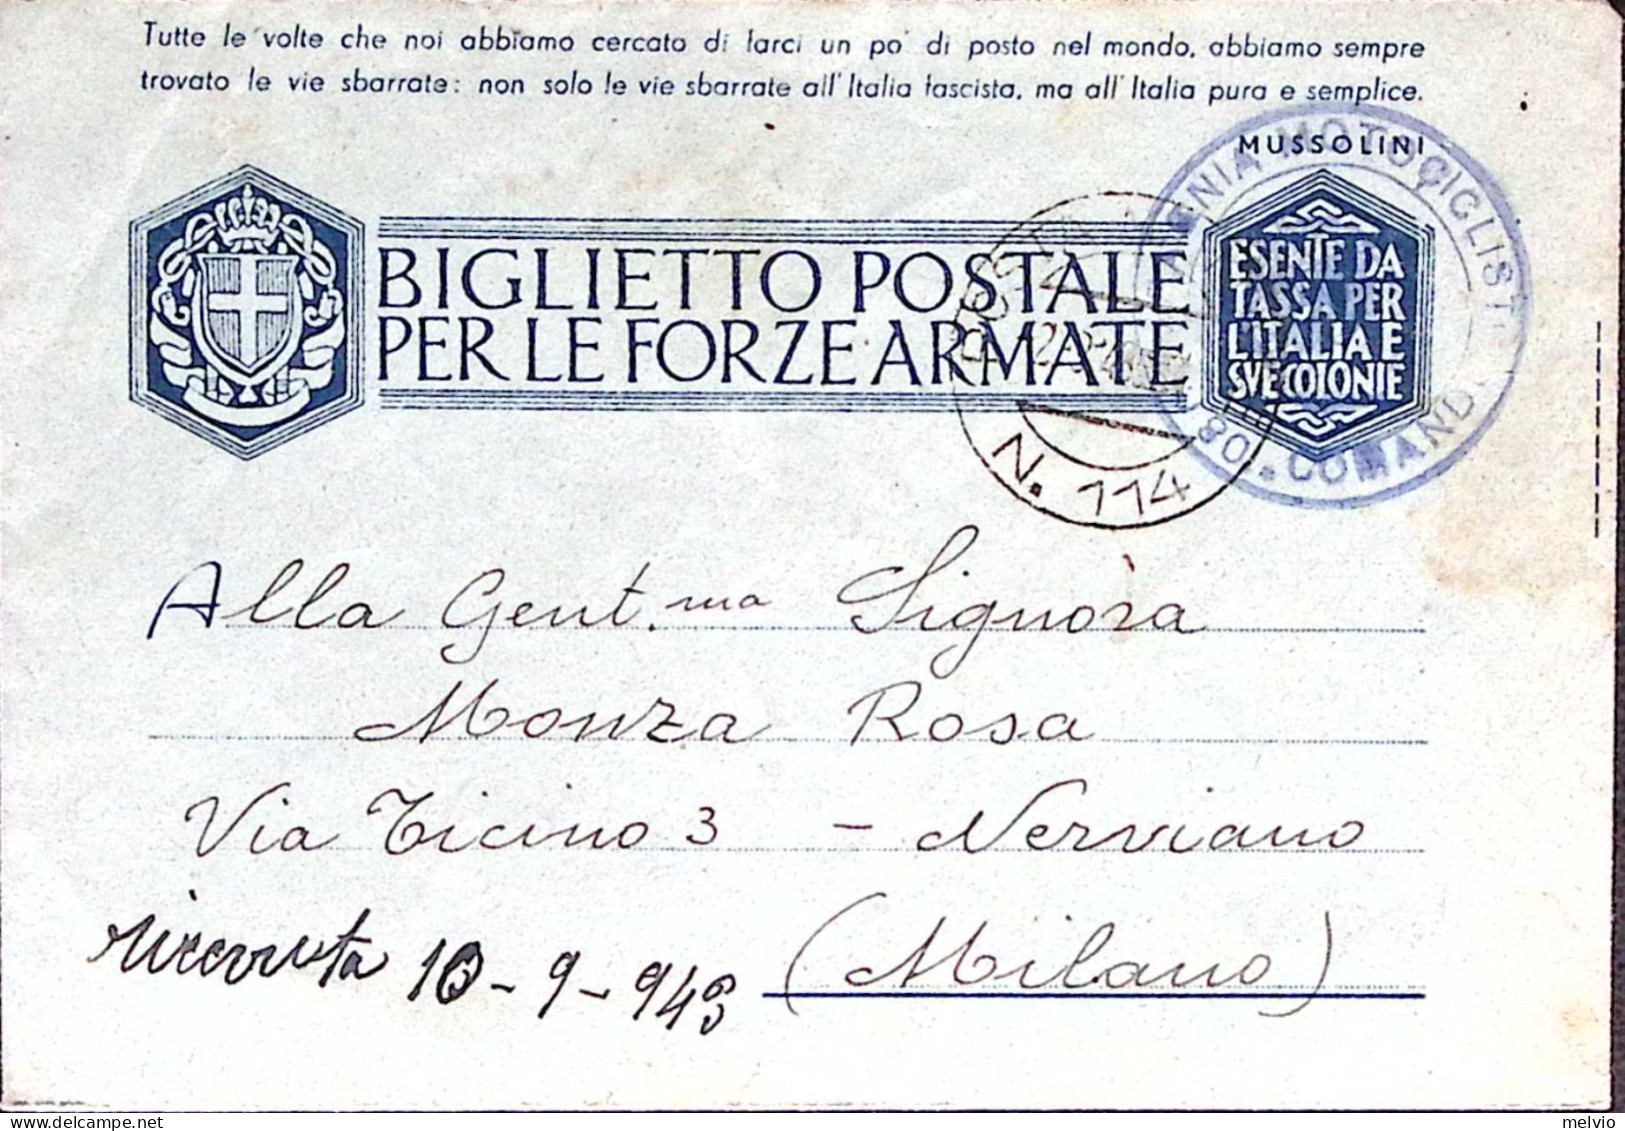 Tutte le volte che noi abbiamo cercato di farci un po' di posto nel mondo, abbiamo sempre
trovato le vie sbarrate: non solo le vie sbarrate all'Italia fascista, ma all'Italia pura e semplice.
MUSSOLINI
BIGLIETTO POSTALE
PER LE FORZE ARMATE
ESENTE DA
TASSA PER
L'ITALIA E
SVE COLONIE
N. 114
COMAND
80
Alla Gent.ma Signora
Monza Rosa
Via Ticino 3 - Nerviano
(Milano)
ricevuta 10-9-943
melvio